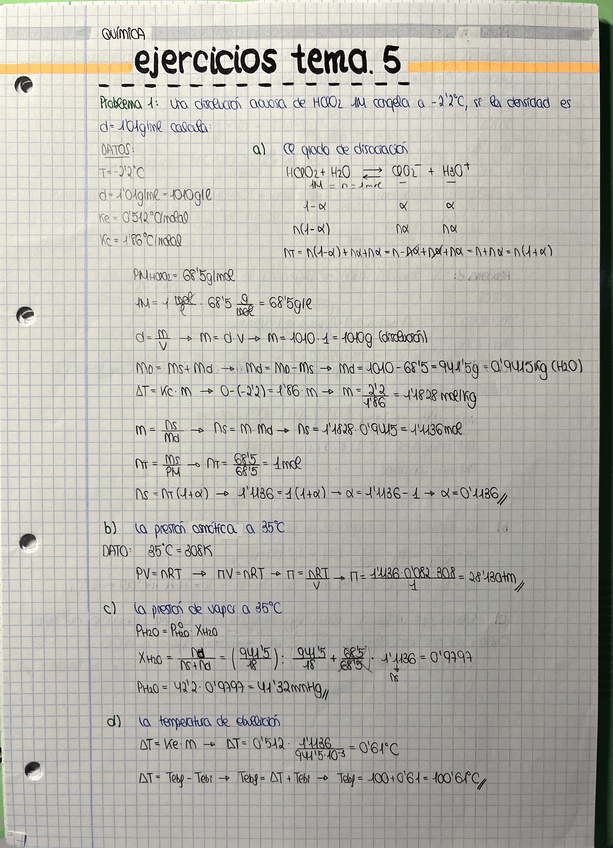 QUÍMICA
ejercicios tema. 5
Problema 1: Una disolución acuosa de HClO2 1M congela a -2'2°C, si la densidad es
d=1'01g/mL calcula:
DATOS:
a) El grado de disociación
T=-2'2°C
HClO2 + H2O ⇄ ClO2⁻ + H3O⁺
1M = n = 1mol
d=1'01g/mL = 1010g/L
1-α α α
Ke = 0'512°C/molal
n(1-α) nα nα
Kc = 1'86°C/molal
nT = n(1-α)+nα+nα = n-nα+nα+nα = n+nα = n(1+α)
PM HClO2 = 68'5g/mol
1M = 1 mol/l · 68'5 g/mol = 68'5g/l
d = m/V → m = d·V → m = 1010·1 = 1010g (disolución)
mD = ms+md → md = mD-ms → md = 1010-68'5 = 941'5g = 0'9415Kg (H2O)
ΔT = Kc·m → 0-(-2'2) = 1'86·m → m = 2'2/1'86 = 1'1828 mol/Kg
m = ns/md → ns = m·md → ns = 1'1828·0'9415 = 1'1136mol
nT = ms/PM → nT = 68'5/68'5 = 1mol
ns = nT(1+α) → 1'1136 = 1(1+α) → α = 1'1136-1 → α = 0'1136//
b) La presión osmótica a 35°C
DATO: 35°C = 308K
PV = nRT → ΠV = nRT → Π = nRT/V → Π = 1'1136·0'082·308/1 = 28'13atm//
c) La presión de vapor a 35°C
PH2O = P°H2O · XH2O
XH2O = nd/ns+nd = (941'5/18) : 941'5/18 + 68'5/68'5 · 1'1136 = 0'9797
ns
PH2O = 42'2 · 0'9797 = 41'32mmHg//
d) La temperatura de ebullición
ΔT = Ke·m → ΔT = 0'512 · 1'1136/941'5·10⁻³ = 0'61°C
ΔT = Tebf - Tebi → Tebf = ΔT + Tebi → Tebf = 100+0'61 = 100'61°C//